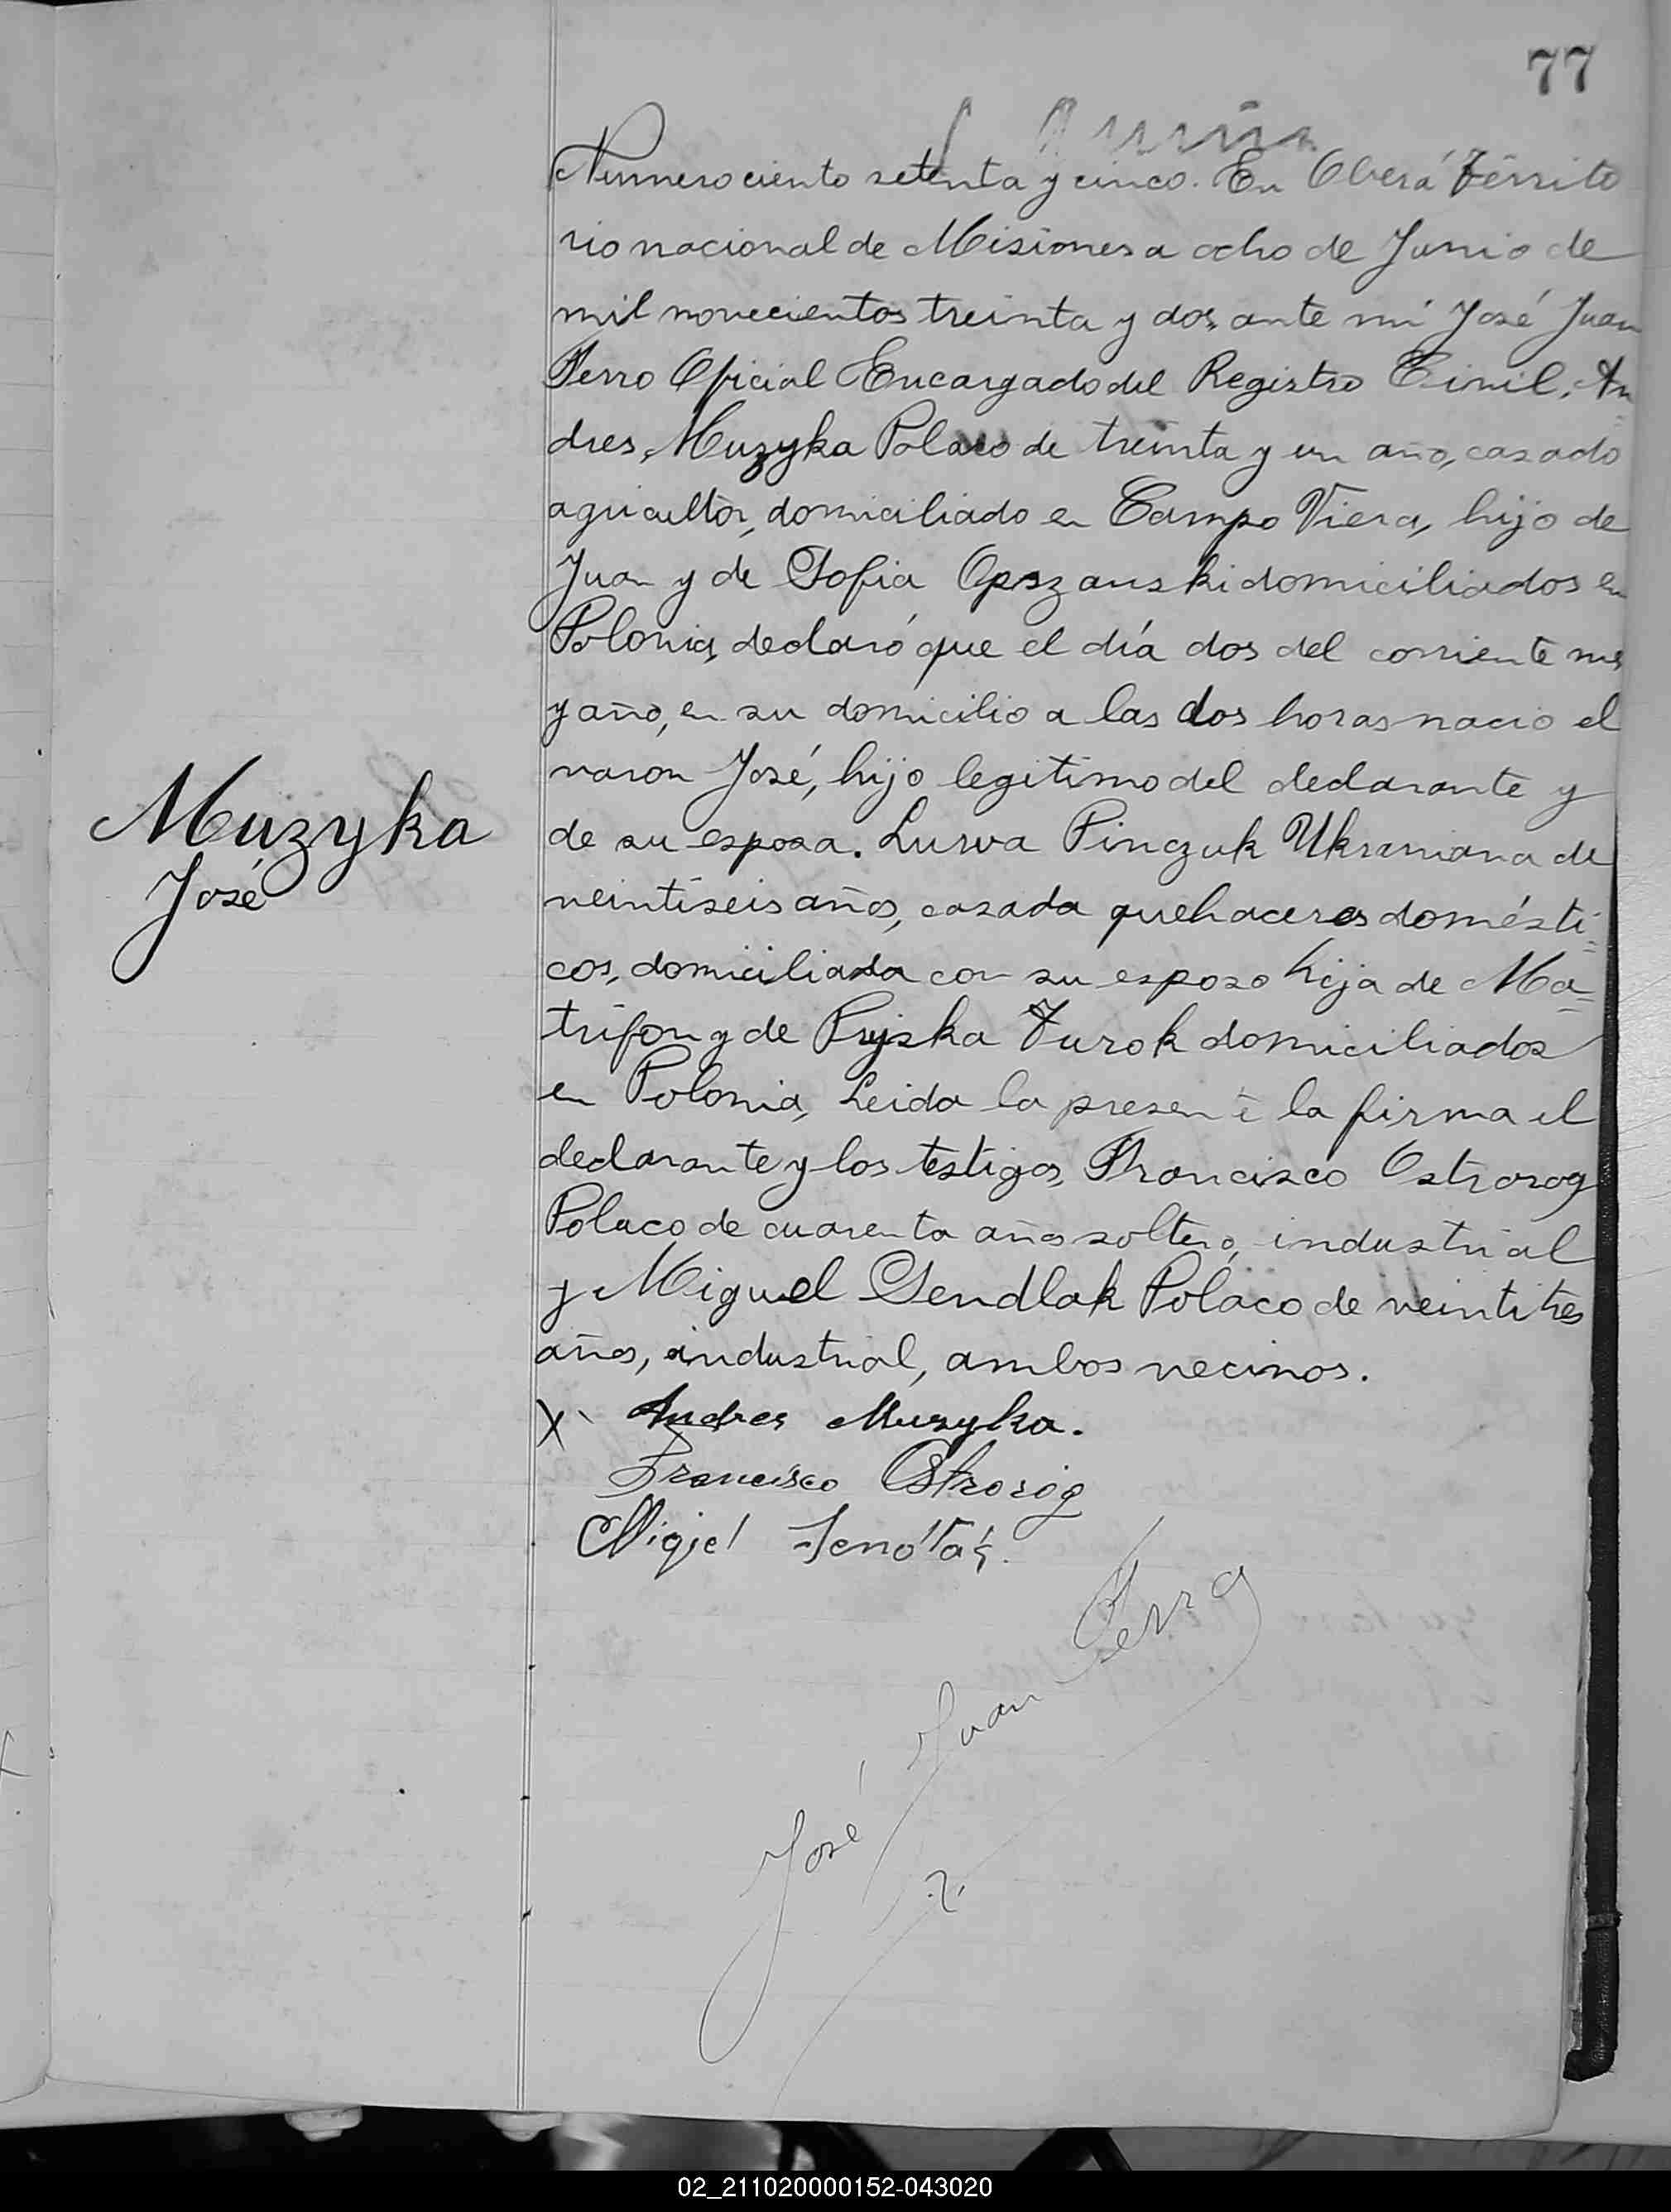 77
Numero ciento setenta y cinco. En Oberá Territo
rio nacional de Misiones a ocho de Junio de
mil novecientos treinta y dos, ante mi José Juan
Perro Oficial Encargado del Registro Civil, An
dres, Muzyka Polaco de treinta y un año, casado
agricultor, domiciliado en Campo Viera, hijo de
Juan y de Sofia Opszanski domiciliados en
Polonia, declaró que el día dos del corriente mes
y año, en su domicilio a las dos horas nacio el
varon José, hijo legitimo del declarante y
Muzyka
José
de su esposa. Lurva Pinczuk Ukraniana de
veintiseis años, casada quehaceres domésti=
cos, domiciliada con su esposo hija de Ma=
trifon y de Pryska Turok domiciliados
en Polonia, Leida la presente la firma el
declarante y los testigos, Francisco Ostrorog
Polaco de cuarenta años soltero, industrial
y Miguel Sendlak Polaco de veintitres
años, industrial, ambos vecinos.
X Andres Muzyka.
Francisco Ostroróg
José Juan Perro
02_211020000152-043020